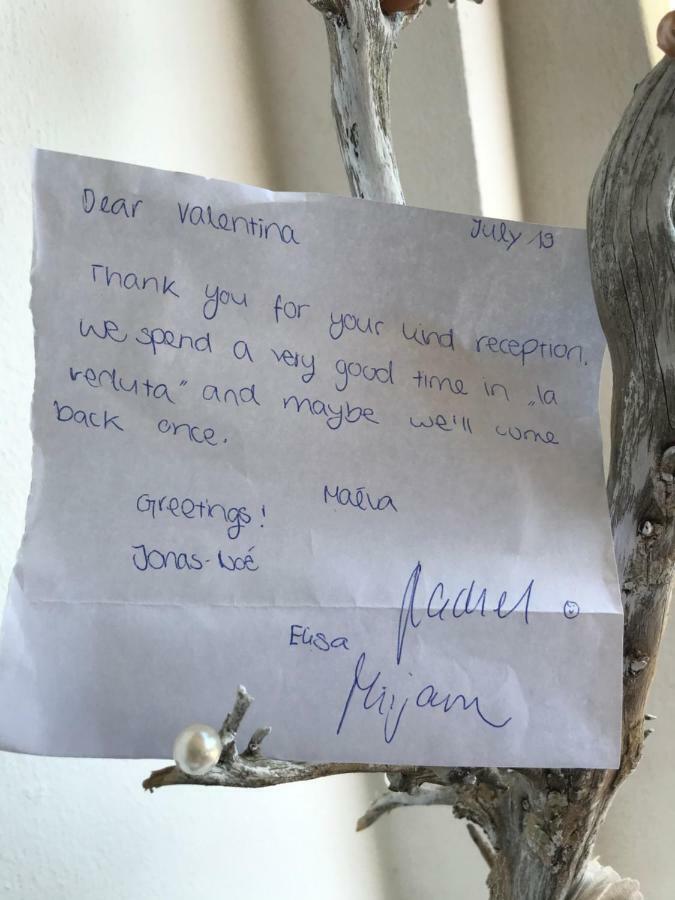 Dear Valentina July 19
Thank you for your kind reception.
We spend a very good time in „la
reduta" and maybe we'll come
back once.
Greetings! Maéva
Jonas-Noé
Rachel ☺
Elisa
Mirjam